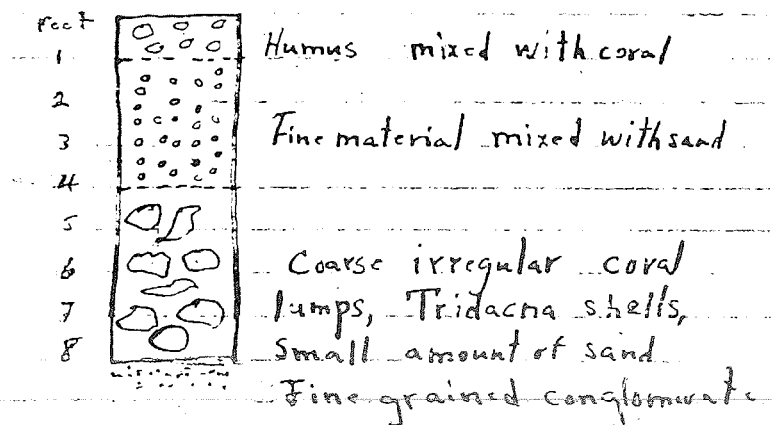 feet
1
Humus mixed with coral
2
3
Fine material mixed with sand
4
5
6
Coarse irregular coral
7
lumps, Tridacna shells,
8
Small amount of sand
Fine grained conglomerate